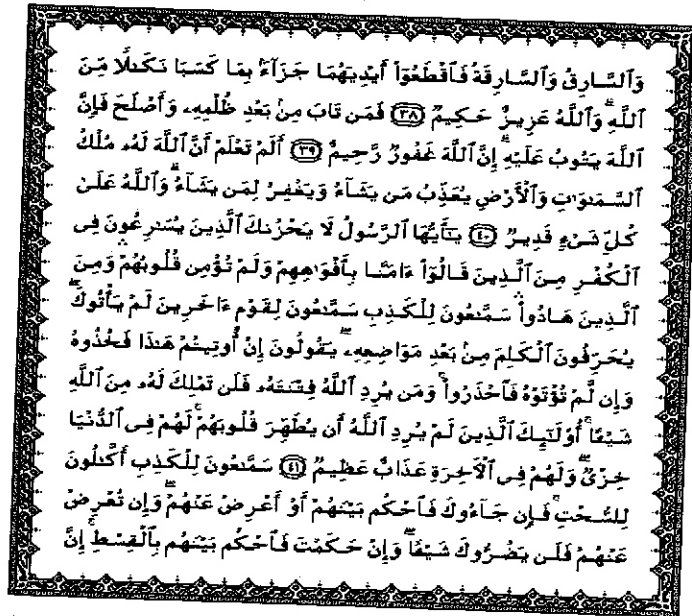 وَٱلسَّارِقُ وَٱلسَّارِقَةُ فَٱقۡطَعُوٓاْ أَيۡدِيَهُمَا جَزَآءَۢ بِمَا كَسَبَا نَكَٰلٗا مِّنَ
ٱللَّهِۗ وَٱللَّهُ عَزِيزٌ حَكِيمٞ ٣٨ فَمَن تَابَ مِنۢ بَعۡدِ ظُلۡمِهِۦ وَأَصۡلَحَ فَإِنَّ
ٱللَّهَ يَتُوبُ عَلَيۡهِۚ إِنَّ ٱللَّهَ غَفُورٞ رَّحِيمٌ ٣٩ أَلَمۡ تَعۡلَمۡ أَنَّ ٱللَّهَ لَهُۥ مُلۡكُ
ٱلسَّمَٰوَٰتِ وَٱلۡأَرۡضِ يُعَذِّبُ مَن يَشَآءُ وَيَغۡفِرُ لِمَن يَشَآءُۗ وَٱللَّهُ عَلَىٰ
كُلِّ شَيۡءٖ قَدِيرٞ ٤٠ يَٰٓأَيُّهَا ٱلرَّسُولُ لَا يَحۡزُنكَ ٱلَّذِينَ يُسَٰرِعُونَ فِي
ٱلۡكُفۡرِ مِنَ ٱلَّذِينَ قَالُوٓاْ ءَامَنَّا بِأَفۡوَٰهِهِمۡ وَلَمۡ تُؤۡمِن قُلُوبُهُمۡۛ وَمِنَ
ٱلَّذِينَ هَادُواْۛ سَمَّٰعُونَ لِلۡكَذِبِ سَمَّٰعُونَ لِقَوۡمٍ ءَاخَرِينَ لَمۡ يَأۡتُوكَۖ
يُحَرِّفُونَ ٱلۡكَلِمَ مِنۢ بَعۡدِ مَوَاضِعِهِۦۖ يَقُولُونَ إِنۡ أُوتِيتُمۡ هَٰذَا فَخُذُوهُ
وَإِن لَّمۡ تُؤۡتَوۡهُ فَٱحۡذَرُواْۚ وَمَن يُرِدِ ٱللَّهُ فِتۡنَتَهُۥ فَلَن تَمۡلِكَ لَهُۥ مِنَ ٱللَّهِ
شَيۡـًٔاۚ أُوْلَٰٓئِكَ ٱلَّذِينَ لَمۡ يُرِدِ ٱللَّهُ أَن يُطَهِّرَ قُلُوبَهُمۡۚ لَهُمۡ فِي ٱلدُّنۡيَا
خِزۡيٞۖ وَلَهُمۡ فِي ٱلۡأٓخِرَةِ عَذَابٌ عَظِيمٞ ٤١ سَمَّٰعُونَ لِلۡكَذِبِ أَكَّٰلُونَ
لِلسُّحۡتِۚ فَإِن جَآءُوكَ فَٱحۡكُم بَيۡنَهُمۡ أَوۡ أَعۡرِضۡ عَنۡهُمۡۖ وَإِن تُعۡرِضۡ
عَنۡهُمۡ فَلَن يَضُرُّوكَ شَيۡـٔٗاۖ وَإِنۡ حَكَمۡتَ فَٱحۡكُم بَيۡنَهُم بِٱلۡقِسۡطِۚ إِنَّ